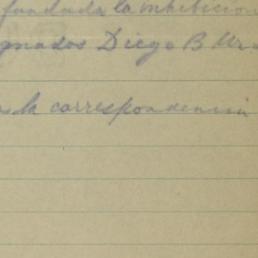 fundada la inhibicion
ignados Diego B Ur
la correspondencia